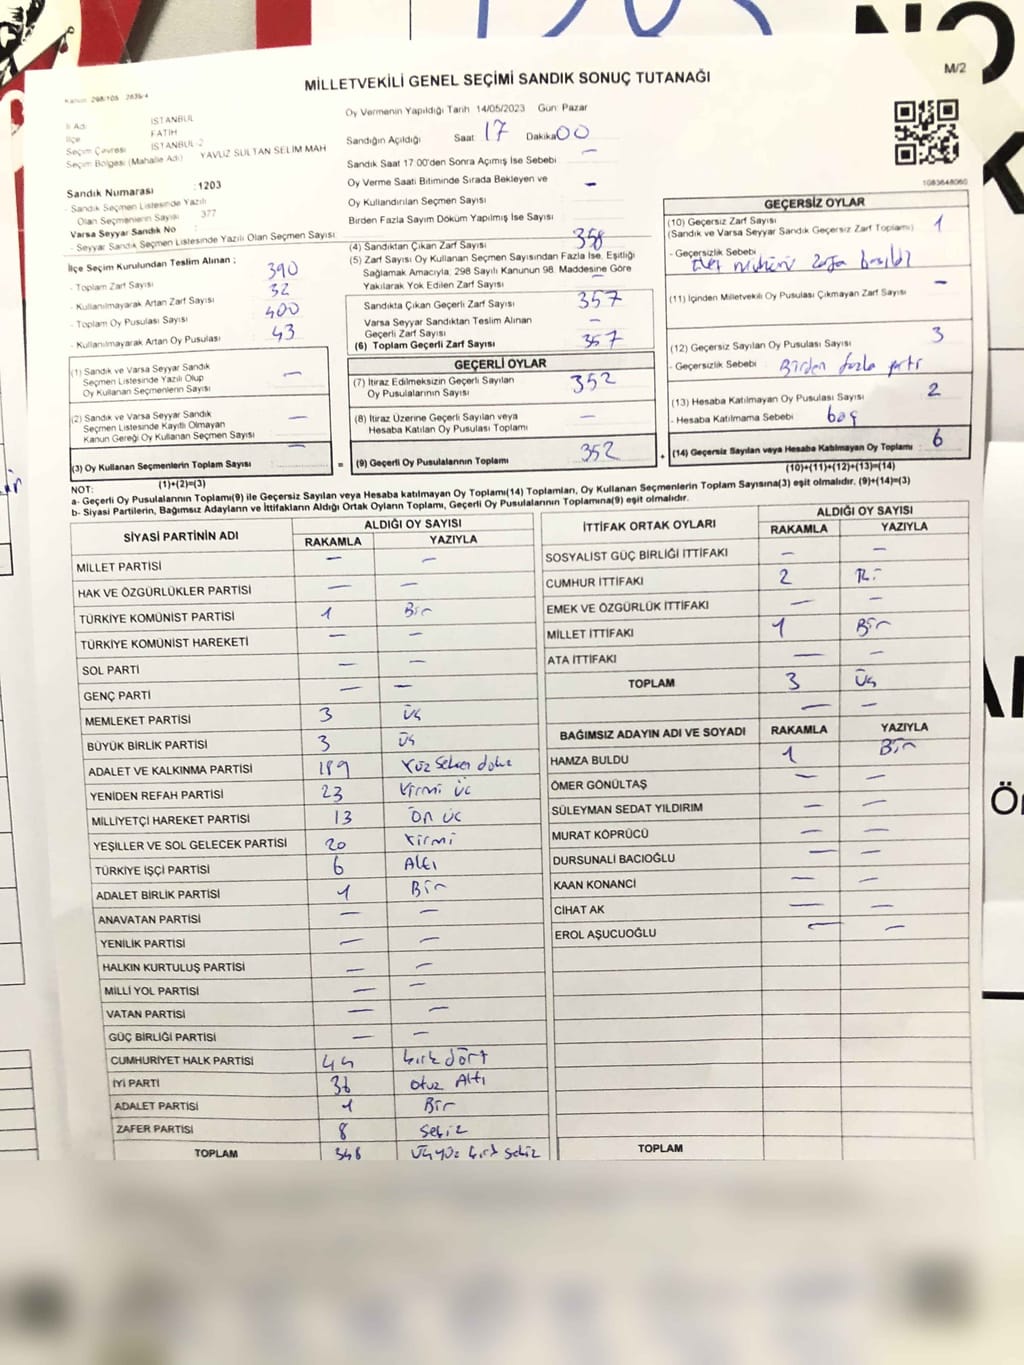 NO
MİLLETVEKİLİ GENEL SEÇİMİ SANDIK SONUÇ TUTANAĞI
M/2
Kanun: 298/105 2839/4
İl Adı : İSTANBUL
İlçe : FATİH
Seçim Çevresi : İSTANBUL-2
Seçim Bölgesi (Mahalle Adı) YAVUZ SULTAN SELİM MAH
Sandık Numarası : 1203
- Sandık Seçmen Listesinde Yazılı
Olan Seçmenlerin Sayısı : 377
Varsa Seyyar Sandık No :
- Seyyar Sandık Seçmen Listesinde Yazılı Olan Seçmen Sayısı:
Oy Vermenin Yapıldığı Tarih 14/05/2023 Gün: Pazar
Sandığın Açıldığı Saat 17 Dakika 00
Sandık Saat 17:00'den Sonra Açımış İse Sebebi —
Oy Verme Saati Bitiminde Sırada Bekleyen ve
Oy Kullandırılan Seçmen Sayısı —
Birden Fazla Sayım Döküm Yapılmış İse Sayısı
1083648060
İlçe Seçim Kurulundan Teslim Alınan ;
- Toplam Zarf Sayısı 390
- Kullanılmayarak Artan Zarf Sayısı 32
- Toplam Oy Pusulası Sayısı 400
- Kullanılmayarak Artan Oy Pusulası 43
(1) Sandık ve Varsa Seyyar Sandık
Seçmen Listesinde Yazılı Olup
Oy Kullanan Seçmenlerin Sayısı —
(2) Sandık ve Varsa Seyyar Sandık
Seçmen Listesinde Kayıtlı Olmayan
Kanun Gereği Oy Kullanan Seçmen Sayısı —
(3) Oy Kullanan Seçmenlerin Toplam Sayısı —
(1)+(2)=(3)
(4) Sandıktan Çıkan Zarf Sayısı 358
(5) Zarf Sayısı Oy Kullanan Seçmen Sayısından Fazla İse, Eşitliği
Sağlamak Amacıyla, 298 Sayılı Kanunun 98. Maddesine Göre
Yakılarak Yok Edilen Zarf Sayısı —
Sandıkta Çıkan Geçerli Zarf Sayısı 357
Varsa Seyyar Sandıktan Teslim Alınan
Geçerli Zarf Sayısı —
(6) Toplam Geçerli Zarf Sayısı 357
GEÇERLİ OYLAR
(7) İtiraz Edilmeksizin Geçerli Sayılan
Oy Pusulalarının Sayısı 352
(8) İtiraz Üzerine Geçerli Sayılan veya
Hesaba Katılan Oy Pusulası Toplamı —
= (9) Geçerli Oy Pusulalarının Toplamı 352 +
GEÇERSİZ OYLAR
(10) Geçersiz Zarf Sayısı 1
(Sandık ve Varsa Seyyar Sandık Geçersiz Zarf Toplamı)
- Geçersizlik Sebebi
(11) İçinden Milletvekili Oy Pusulası Çıkmayan Zarf Sayısı —
(12) Geçersiz Sayılan Oy Pusulası Sayısı 3
- Geçersizlik Sebebi Birden fazla parti
(13) Hesaba Katılmayan Oy Pusulası Sayısı 2
- Hesaba Katılmama Sebebi boş
(14) Geçersiz Sayılan veya Hesaba Katılmayan Oy Toplamı 6
(10)+(11)+(12)+(13)=(14)
NOT:
a- Geçerli Oy Pusulalarının Toplamı(9) ile Geçersiz Sayılan veya Hesaba katılmayan Oy Toplamı(14) Toplamları, Oy Kullanan Seçmenlerin Toplam Sayısına(3) eşit olmalıdır. (9)+(14)=(3)
b- Siyasi Partilerin, Bağımsız Adayların ve İttifakların Aldığı Ortak Oyların Toplamı, Geçerli Oy Pusulalarının Toplamına(9) eşit olmalıdır.
SİYASİ PARTİNİN ADI ALDIĞI OY SAYISI
RAKAMLA YAZIYLA
MİLLET PARTİSİ — —
HAK VE ÖZGÜRLÜKLER PARTİSİ — —
TÜRKİYE KOMÜNİST PARTİSİ 1 Bir
TÜRKİYE KOMÜNİST HAREKETİ — —
SOL PARTİ — —
GENÇ PARTİ — —
MEMLEKET PARTİSİ 3 Üç
BÜYÜK BİRLİK PARTİSİ 3 Üç
ADALET VE KALKINMA PARTİSİ 189 Yüz Seksen dokuz
YENİDEN REFAH PARTİSİ 23 Yirmi üç
MİLLİYETÇİ HAREKET PARTİSİ 13 On üç
YEŞİLLER VE SOL GELECEK PARTİSİ 20 Yirmi
TÜRKİYE İŞÇİ PARTİSİ 6 Altı
ADALET BİRLİK PARTİSİ 1 Bir
ANAVATAN PARTİSİ — —
YENİLİK PARTİSİ — —
HALKIN KURTULUŞ PARTİSİ — —
MİLLİ YOL PARTİSİ — —
VATAN PARTİSİ — —
GÜÇ BİRLİĞİ PARTİSİ — —
CUMHURİYET HALK PARTİSİ 44 kırk dört
İYİ PARTİ 36 otuz Altı
ADALET PARTİSİ 1 Bir
ZAFER PARTİSİ 8 Sekiz
TOPLAM 348 Üçyüz kırk sekiz
İTTİFAK ORTAK OYLARI ALDIĞI OY SAYISI
RAKAMLA YAZIYLA
SOSYALİST GÜÇ BİRLİĞİ İTTİFAKI — —
CUMHUR İTTİFAKI 2 İki
EMEK VE ÖZGÜRLÜK İTTİFAKI — —
MİLLET İTTİFAKI 1 Bir
ATA İTTİFAKI — —
TOPLAM 3 Üç
— —
BAĞIMSIZ ADAYIN ADI VE SOYADI RAKAMLA YAZIYLA
HAMZA BULDU 1 Bir
ÖMER GÖNÜLTAŞ — —
SÜLEYMAN SEDAT YILDIRIM — —
MURAT KÖPRÜCÜ — —
DURSUNALİ BACIOĞLU — —
KAAN KONANCİ — —
CİHAT AK — —
EROL AŞUCUOĞLU — —
TOPLAM